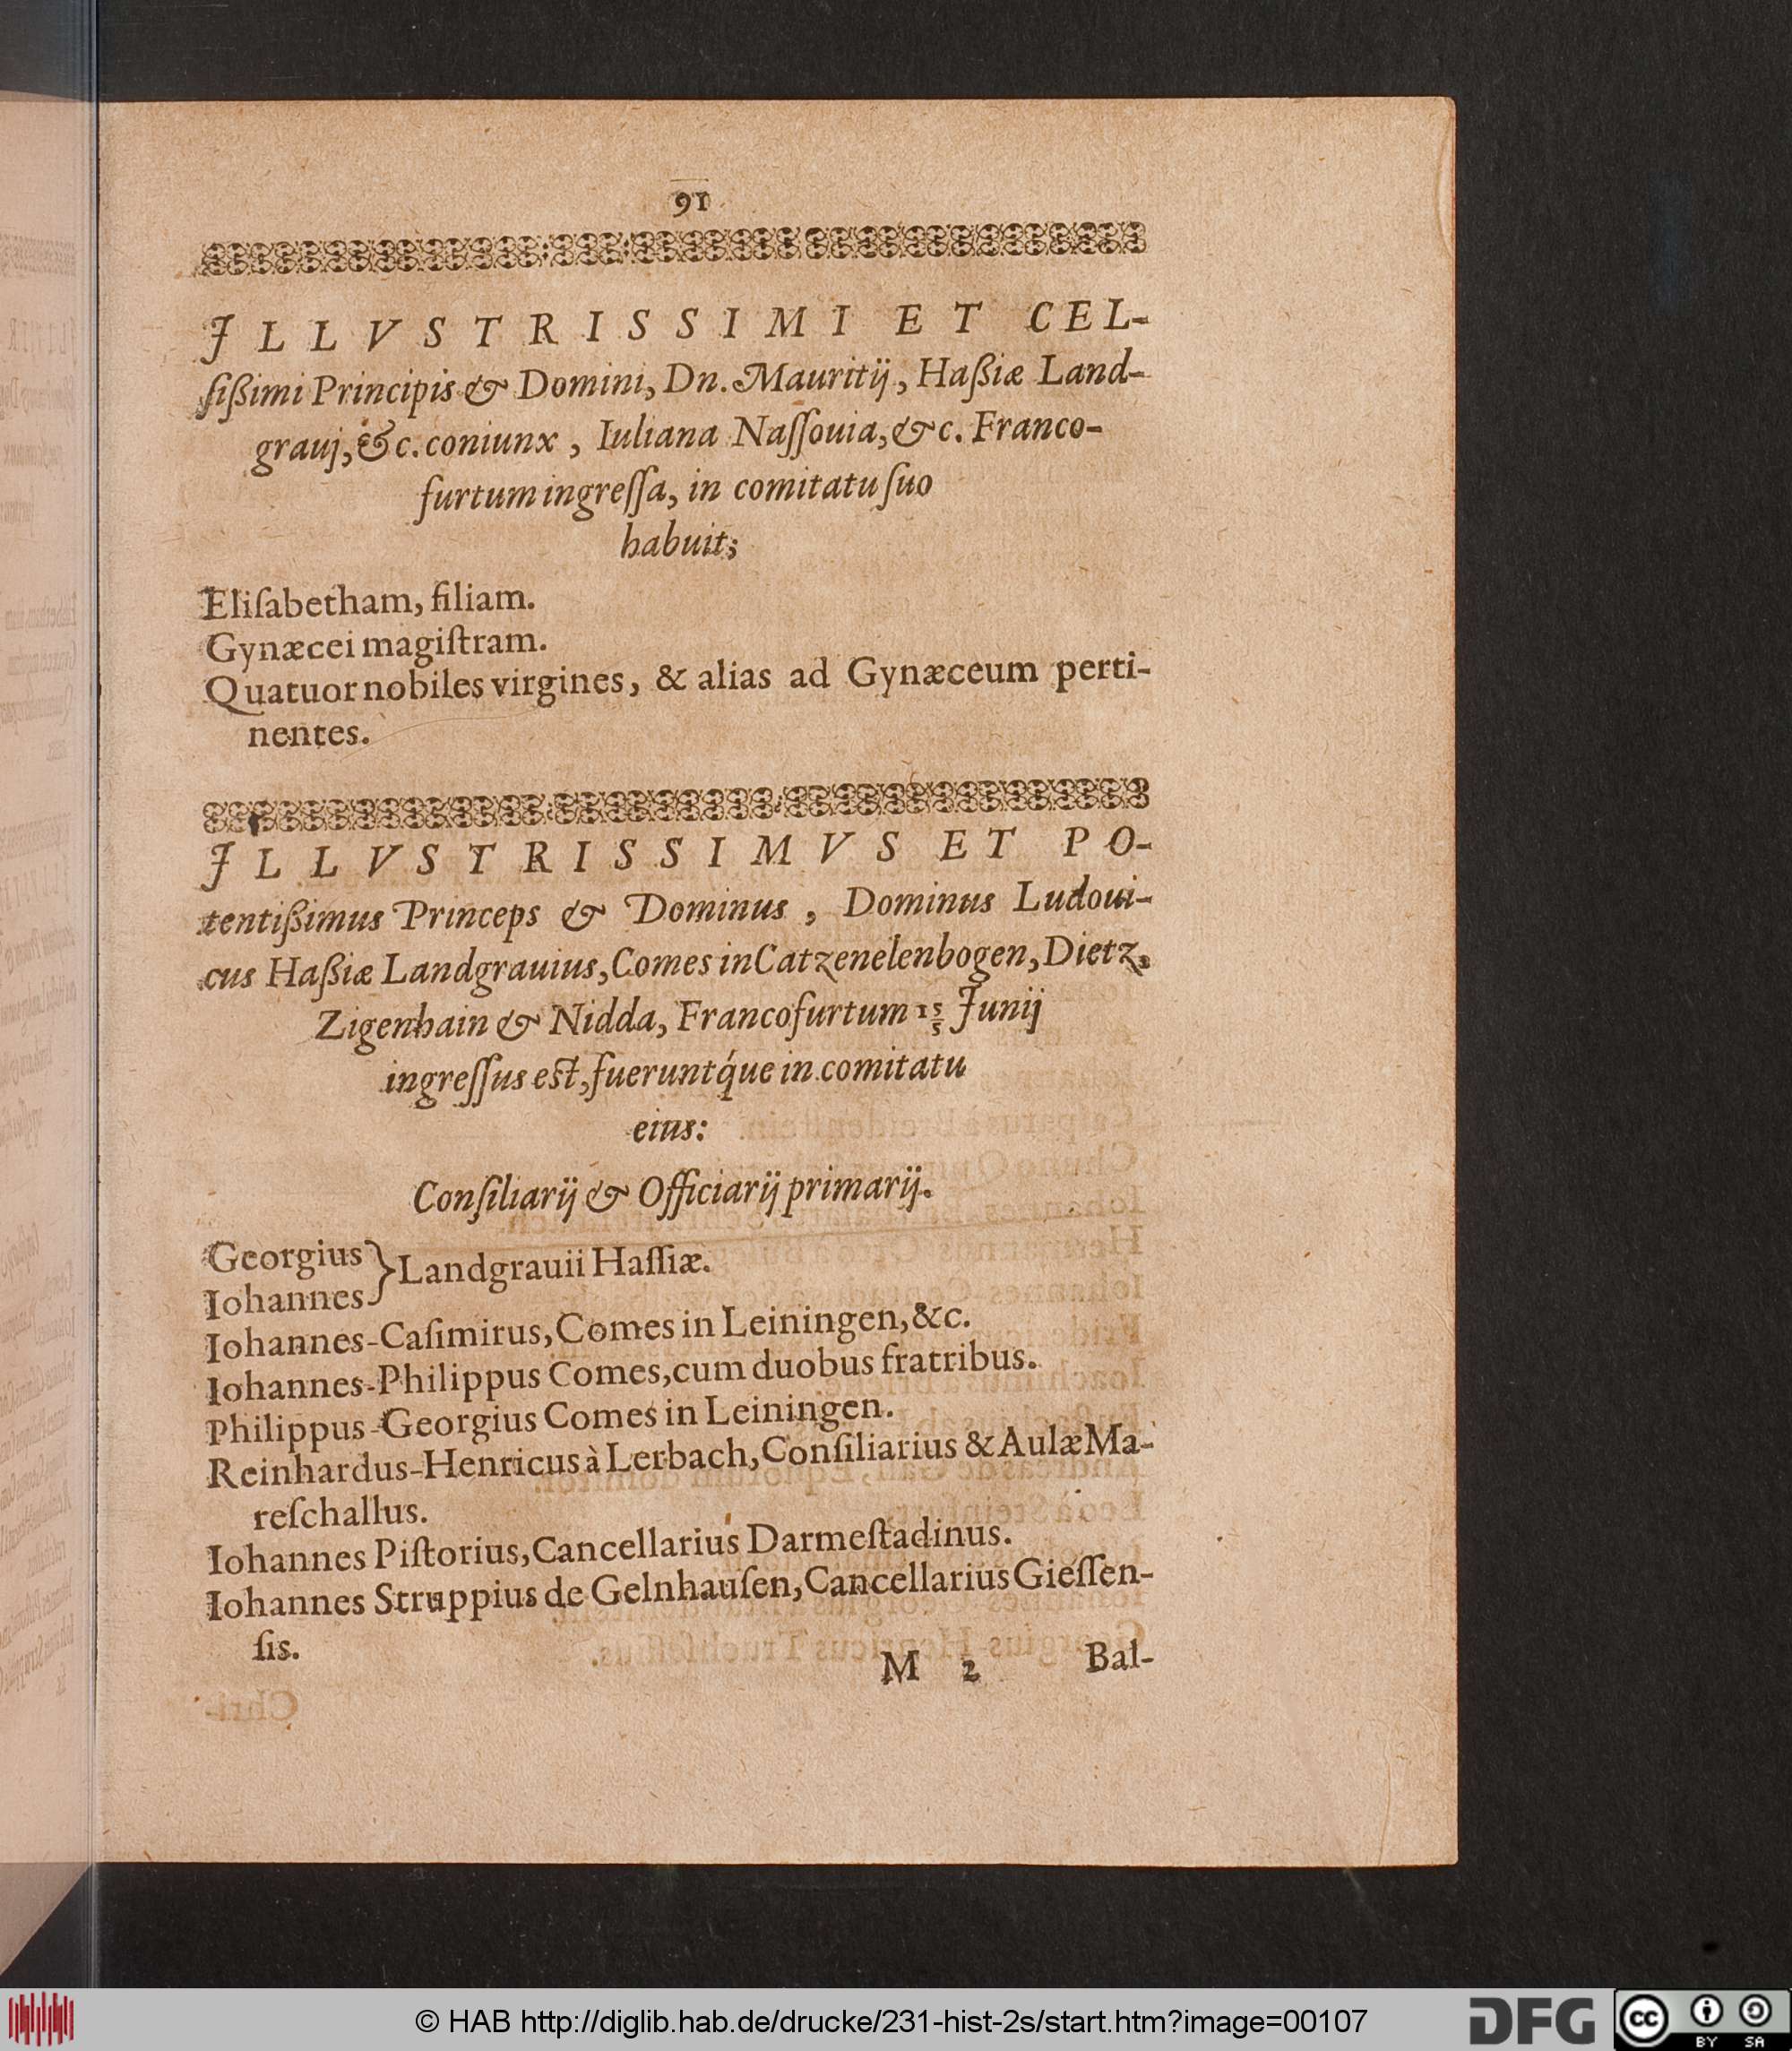 91
ILLVSTRISSIMI ET CEL-
ſißimi Principis & Domini, Dn. Mauritij, Haßiæ Land-
grauj, &c. coniunx, Iuliana Naſſouia, &c. Franco-
furtum ingreſſa, in comitatu ſuo
habuit;
Eliſabetham, filiam.
Gynæcei magiſtram.
Quatuor nobiles virgines, & alias ad Gynæceum perti-
nentes.
ILLVSTRISSIMVS ET PO-
tentißimus Princeps & Dominus, Dominus Ludoui-
cus Haßiæ Landgrauius, Comes in Catzenelenbogen, Dietz,
Zigenhain & Nidda, Francofurtum 15/5 Junij
ingreſſus eſt, fueruntq́ue in comitatu
eius:
Conſiliarij & Officiarij primarij.
Georgius } Landgrauii Haſſiæ.
Iohannes
Iohannes-Caſimirus, Comes in Leiningen, &c.
Iohannes-Philippus Comes, cum duobus fratribus.
Philippus-Georgius Comes in Leiningen.
Reinhardus-Henricus à Lerbach, Conſiliarius & Aulæ Ma-
reſchallus.
Iohannes Piſtorius, Cancellarius Darmeſtadinus.
Iohannes Struppius de Gelnhauſen, Cancellarius Gieſſen-
ſis.
M 2 Bal-
© HAB http://diglib.hab.de/drucke/231-hist-2s/start.htm?image=00107
DFG
cc BY SA